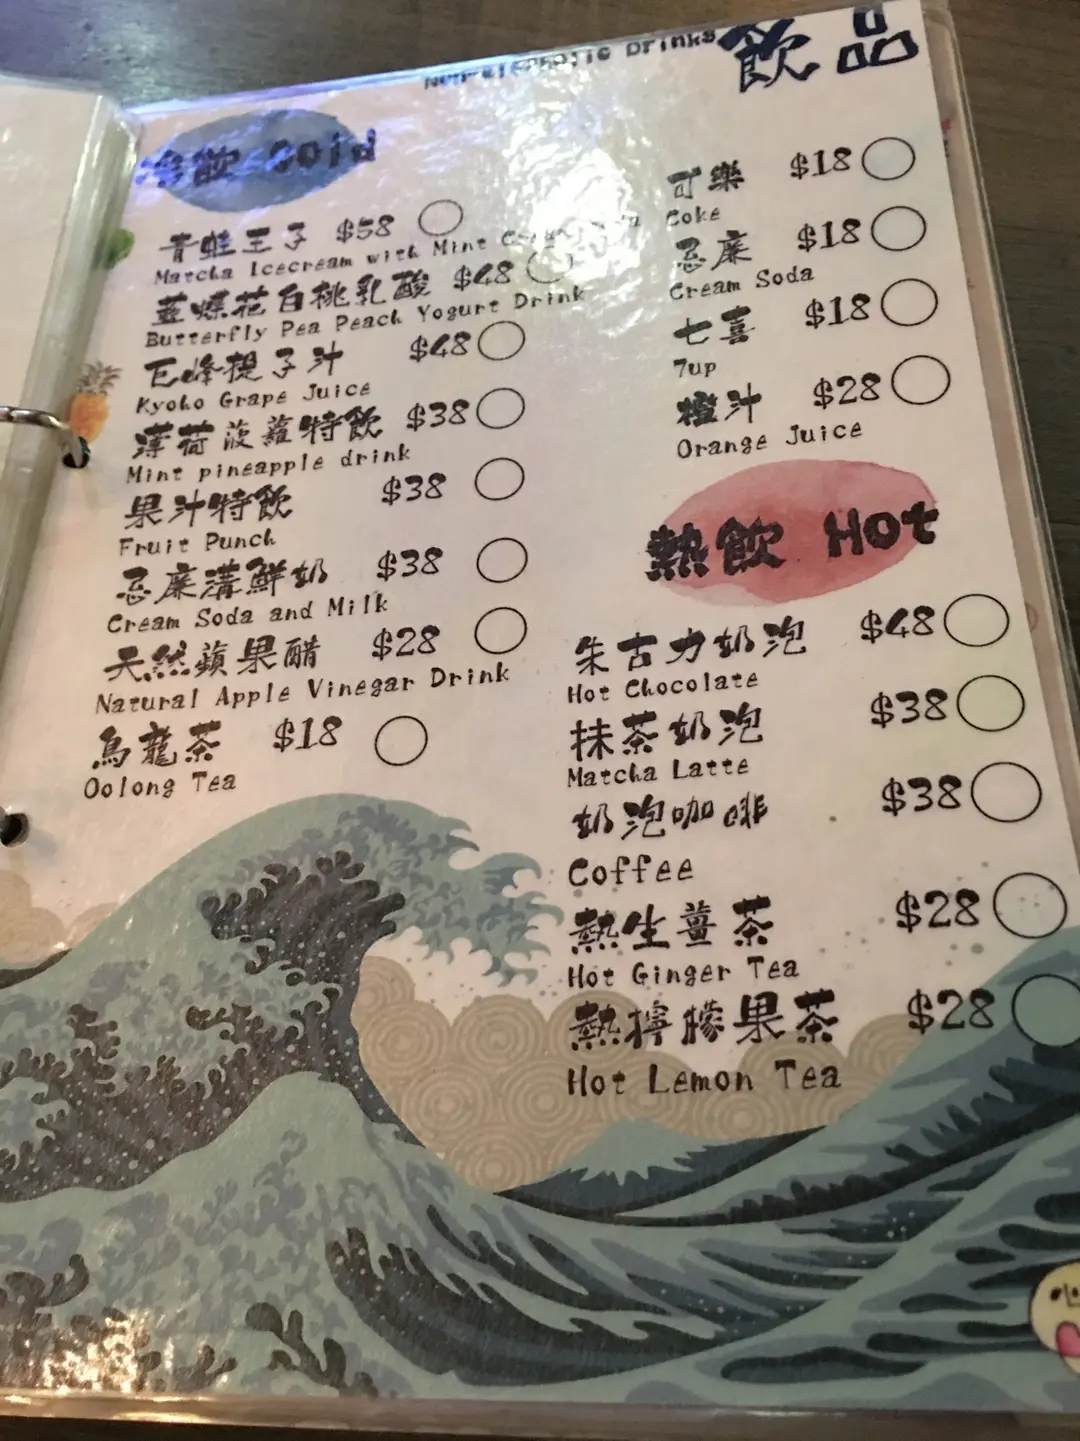 飲品
Non-alcoholic Drinks
冷飲 Cold
青蛙王子 $58
Matcha Icecream with Mint Cream Soda
蓝蝶花白桃乳酸 $48
Butterfly Pea Peach Yogurt Drink
巨峰提子汁 $48
Kyoho Grape Juice
薄荷菠蘿特飲 $38
Mint pineapple drink
果汁特飲 $38
Fruit Punch
忌廉溝鮮奶 $38
Cream Soda and Milk
天然蘋果醋 $28
Natural Apple Vinegar Drink
烏龍茶 $18
Oolong Tea
可樂 $18
Coke
忌廉 $18
Cream Soda
七喜 $18
7up
橙汁 $28
Orange Juice
熱飲 Hot
朱古力奶泡 $48
Hot Chocolate
抹茶奶泡 $38
Matcha Latte
奶泡咖啡 $38
Coffee
熱生薑茶 $28
Hot Ginger Tea
熱檸檬果茶 $28
Hot Lemon Tea